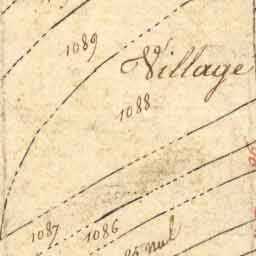 1089
Village
1088
1087
1086
85 nul